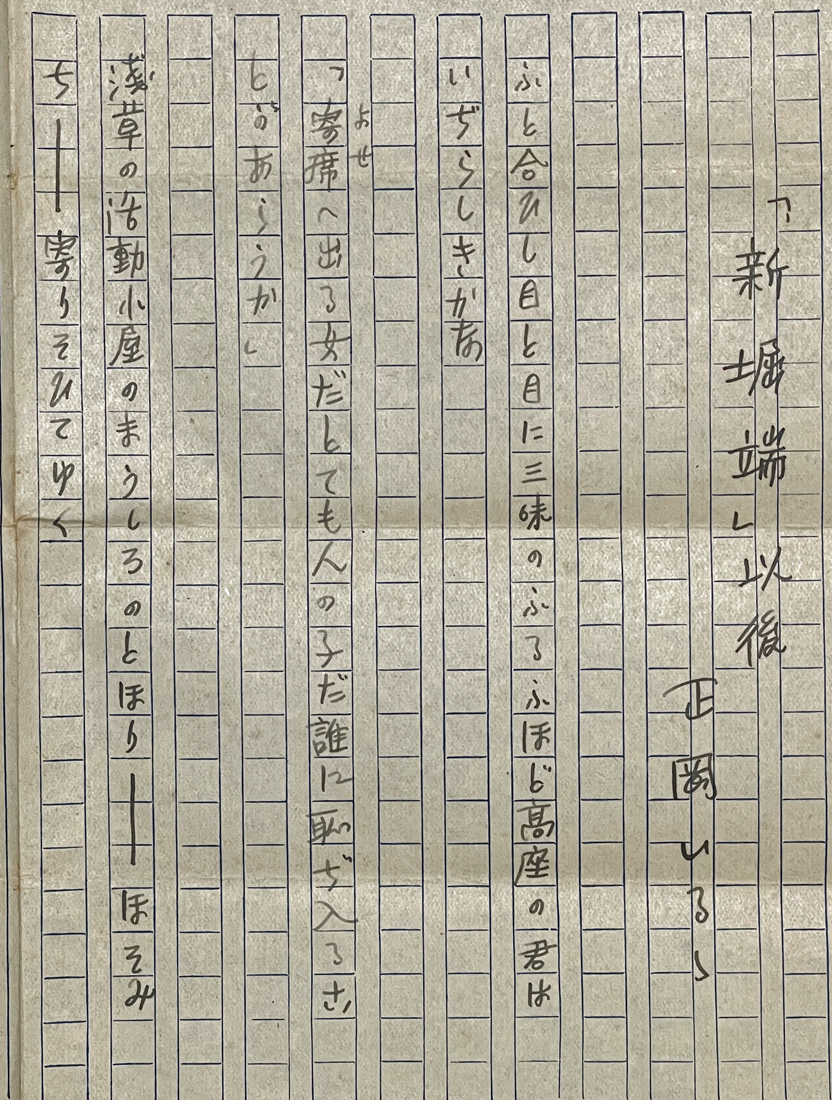 「新堀端」以後
正岡いるゝ
ふと合ひし目と目に三味のふるふほど高座の君は
いぢらしきかな
「寄席へ出る女だとても人の子だ誰に恥ぢ入るこ
よせ
とがあらうか」
淺草の活動小屋のまうしろのとほり――ほそみ
ち――寄りそひてゆく